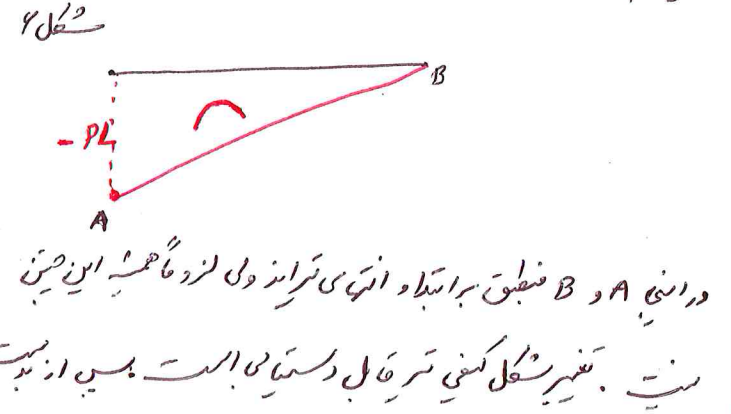 شکل ۶
B
- PL
A
در اینجا A و B منطبق بر ابتدا و انتهای تیرند ولی لزوماً همیشه این چنین
نیست . تغییر شکل کیفی تیر قابل دستیابی است پس از